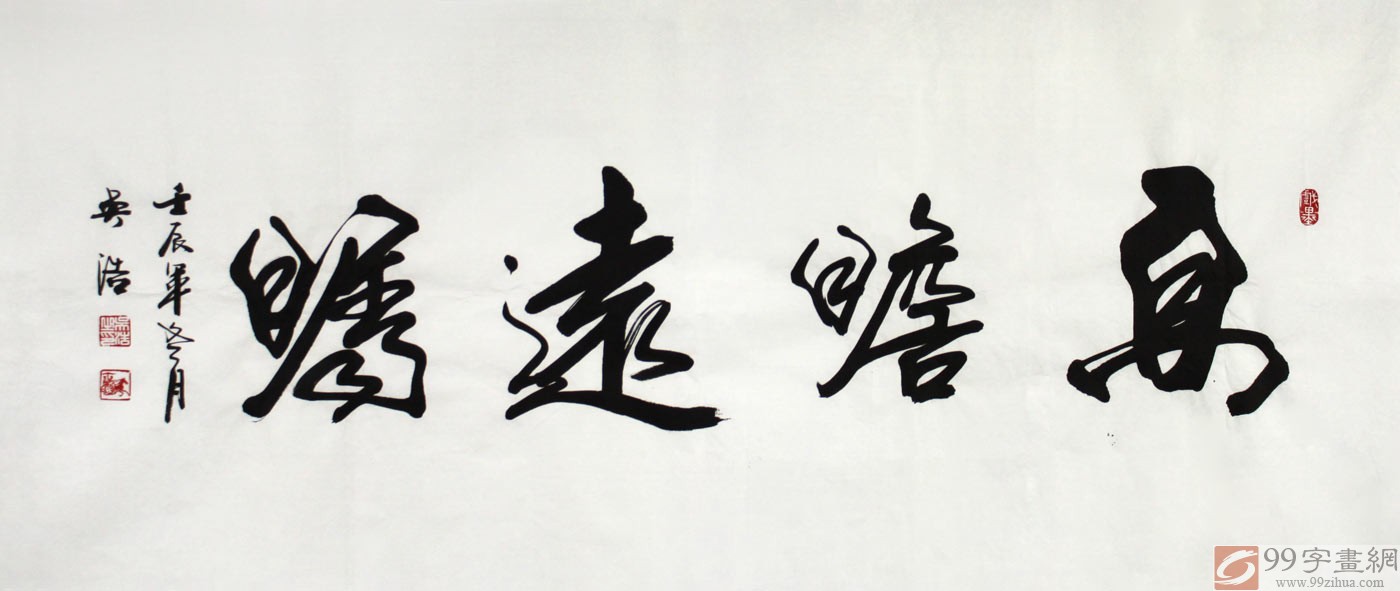 高瞻遠矚
壬辰年冬月
吴浩
99字畫網
www.99zihua.com